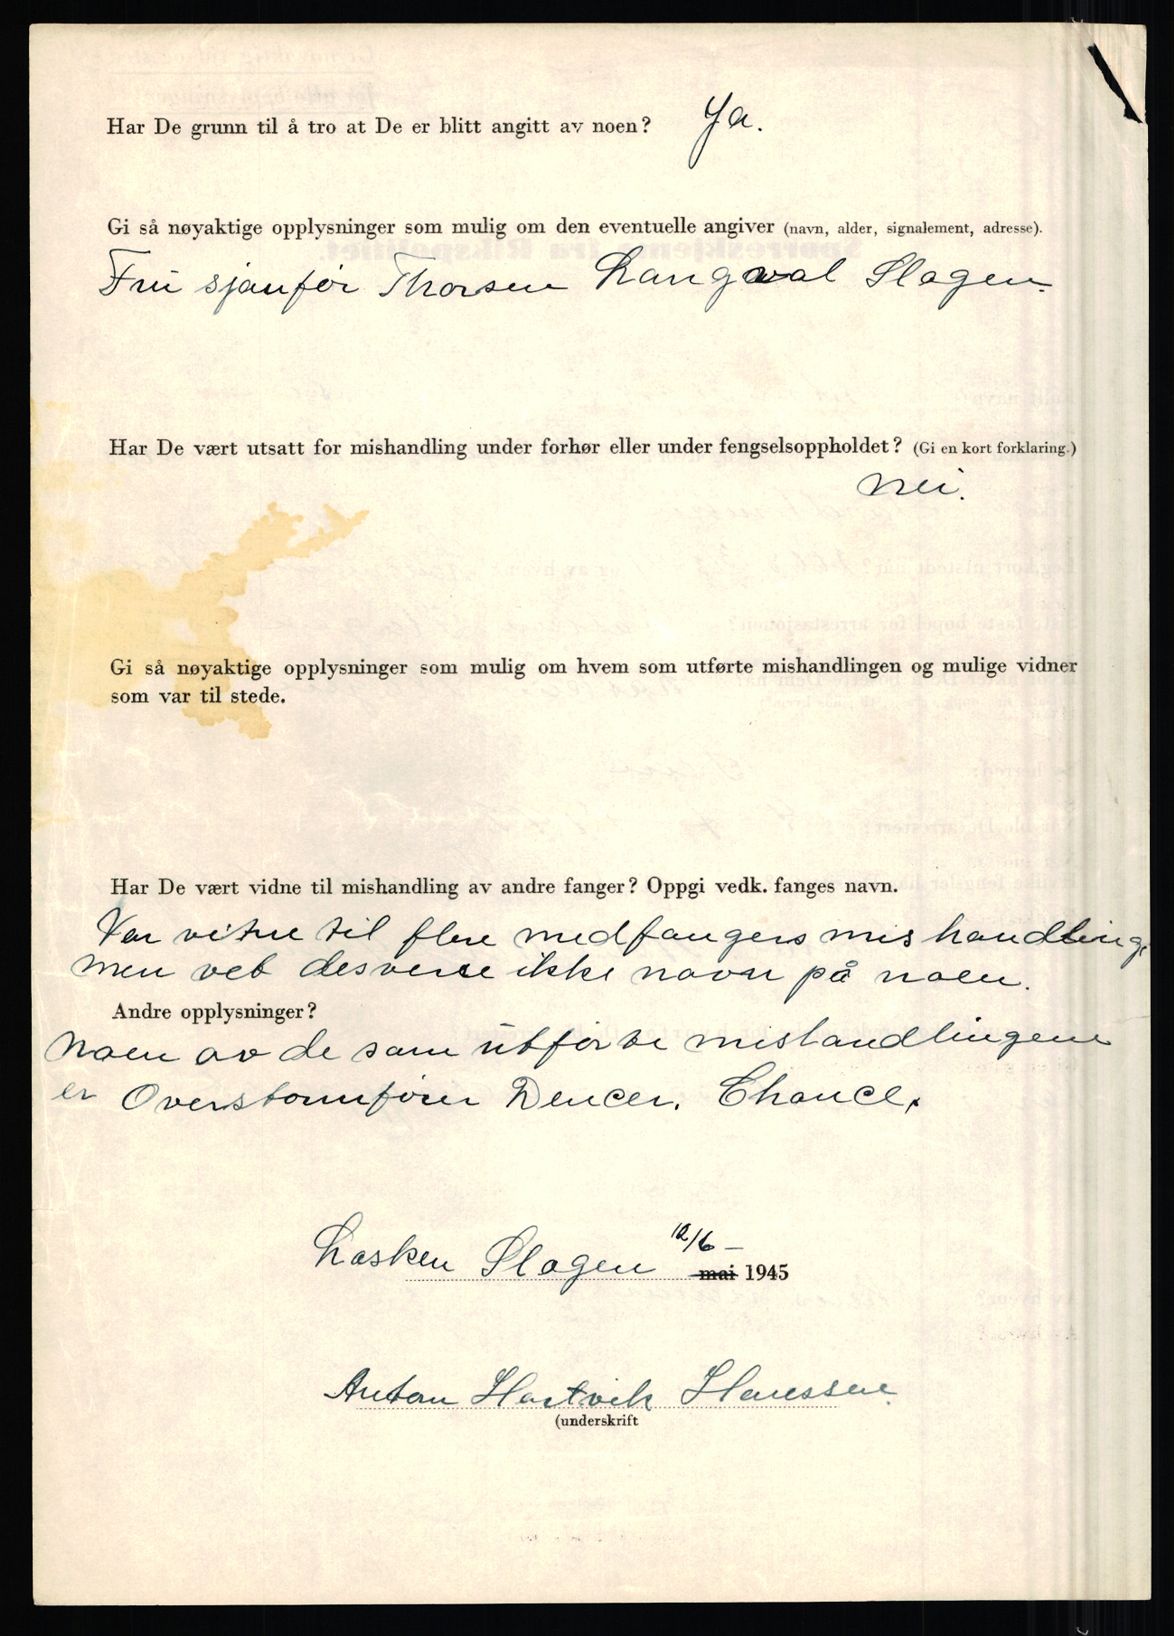 Har De grunn til å tro at De er blitt angitt av noen? Ya.
Gi så nøyaktige opplysninger som mulig om den eventuelle angiver (navn, alder, signalement, adresse).
Fru sjaufør Thorsen Langval Slagen.
Har De vært utsatt for mishandling under forhør eller under fengselsoppholdet? (Gi en kort forklaring.)
Nei.
Gi så nøyaktige opplysninger som mulig om hvem som utførte mishandlingen og mulige vidner
som var til stede.
Har De vært vidne til mishandling av andre fanger? Oppgi vedk. fanges navn.
Var vitne til flere medfangers mishandling,
men vet desverre ikke navn på noen.
Andre opplysninger?
Noen av de som utførte mishandlingene
er Overstormfører Dencer. Chance.
Løsken Slagen 12/6 -
mai 1945
Anton Hartvik Hanssen.
(underskrift